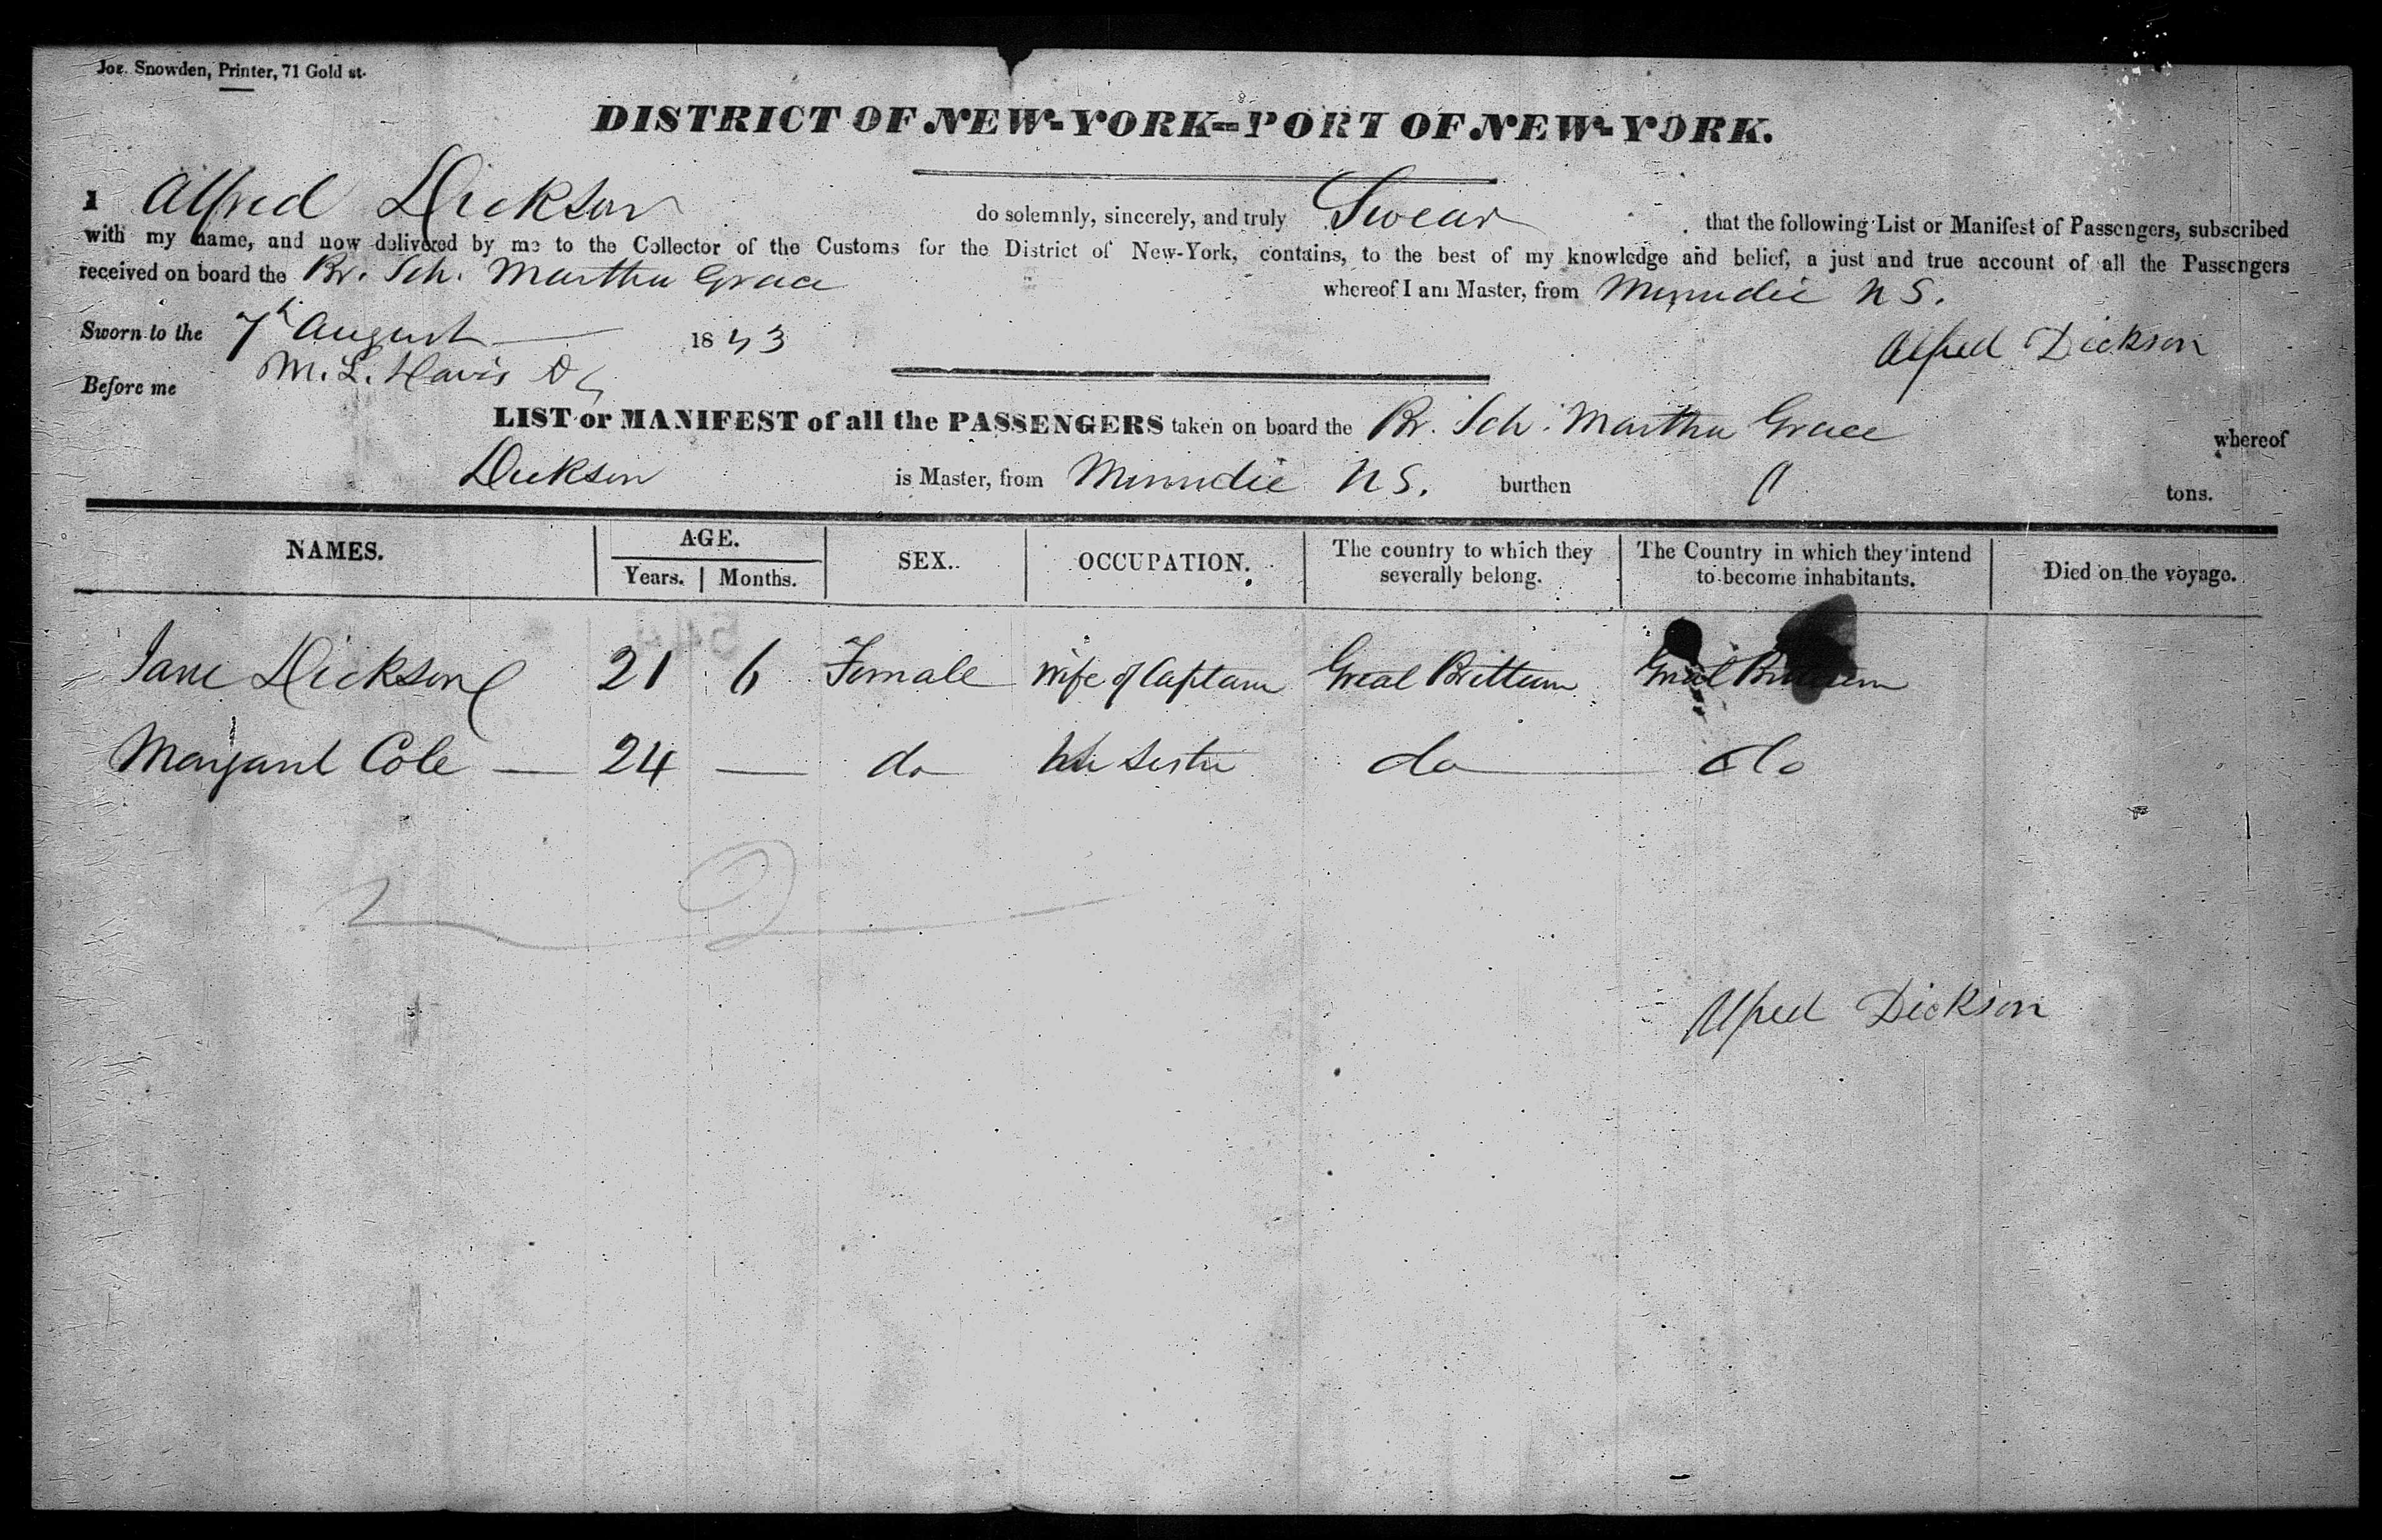 Jos. Snowden, Printer, 71 Gold st.
DISTRICT OF NEW-YORK--PORT OF NEW-YORK.
I Alfred Dickson do solemnly, sincerely, and truly Swear that the following List or Manifest of Passengers, subscribed
with my name, and now delivered by me to the Collector of the Customs for the District of New-York, contains, to the best of my knowledge and belief, a just and true account of all the Passengers
received on board the Br. Sch. Martha Grace whereof I am Master, from Minudie N S.
Sworn to the 7th August 1843
Alfred Dickson
Before me M. L. Davis
LIST or MANIFEST of all the PASSENGERS taken on board the Br. Sch. Martha Grace whereof
Dickson is Master, from Minudie N S. burthen tons.
NAMES. AGE. Years. Months. SEX. OCCUPATION. The country to which they severally belong. The Country in which they intend to become inhabitants. Died on the voyage.
Jane Dickson 21 6 Female Wife of Captain Great Brittain Great Brittain
Margaret Cole — 24 — do her Sister do do
2 2
Alfred Dickson